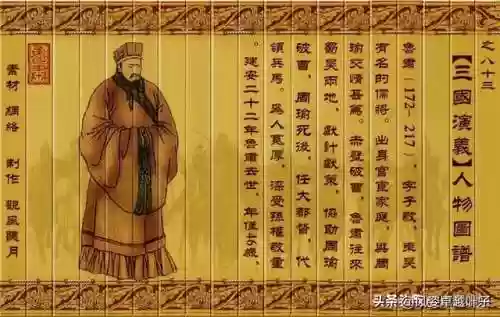 之八十三
【三國演義】人物圖譜
魯肅(172-217)，字子敬，東吳
有名的儒將。出身官宦家庭，與周
瑜交情甚篤。赤壁破曹，魯肅往來
蜀吳兩地，獻計獻策，協助周瑜
破曹，周瑜死後，任大都督，代
領兵馬。爲人寬厚，深受孫權敬重
。建安二十二年魯肅去世，年僅 歲。
素材 網絡 制作 觀風聽月
头条 卓越叶子